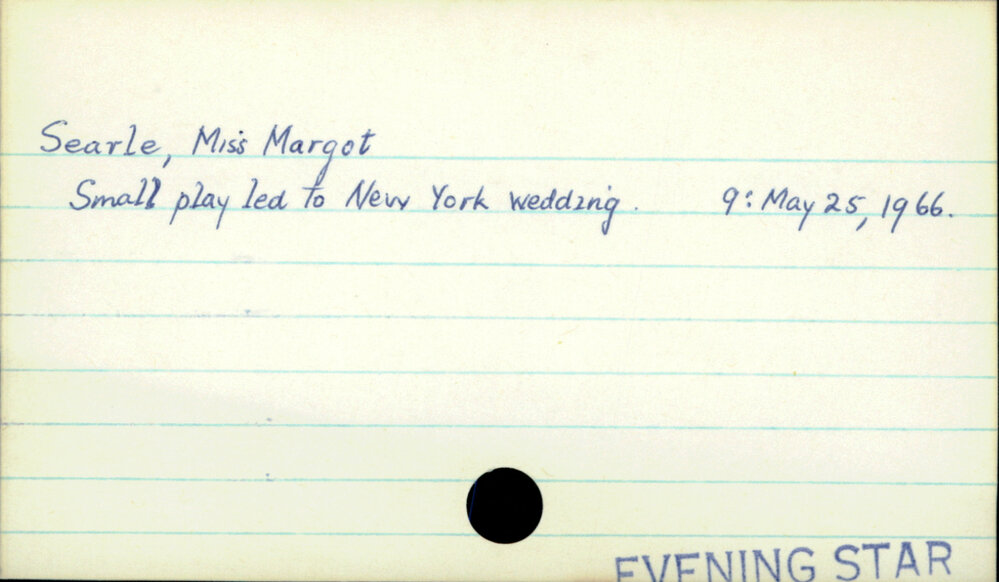 Searle, Miss Margot
Small play led to New York wedding. 9: May 25, 1966.
EVENING STAR